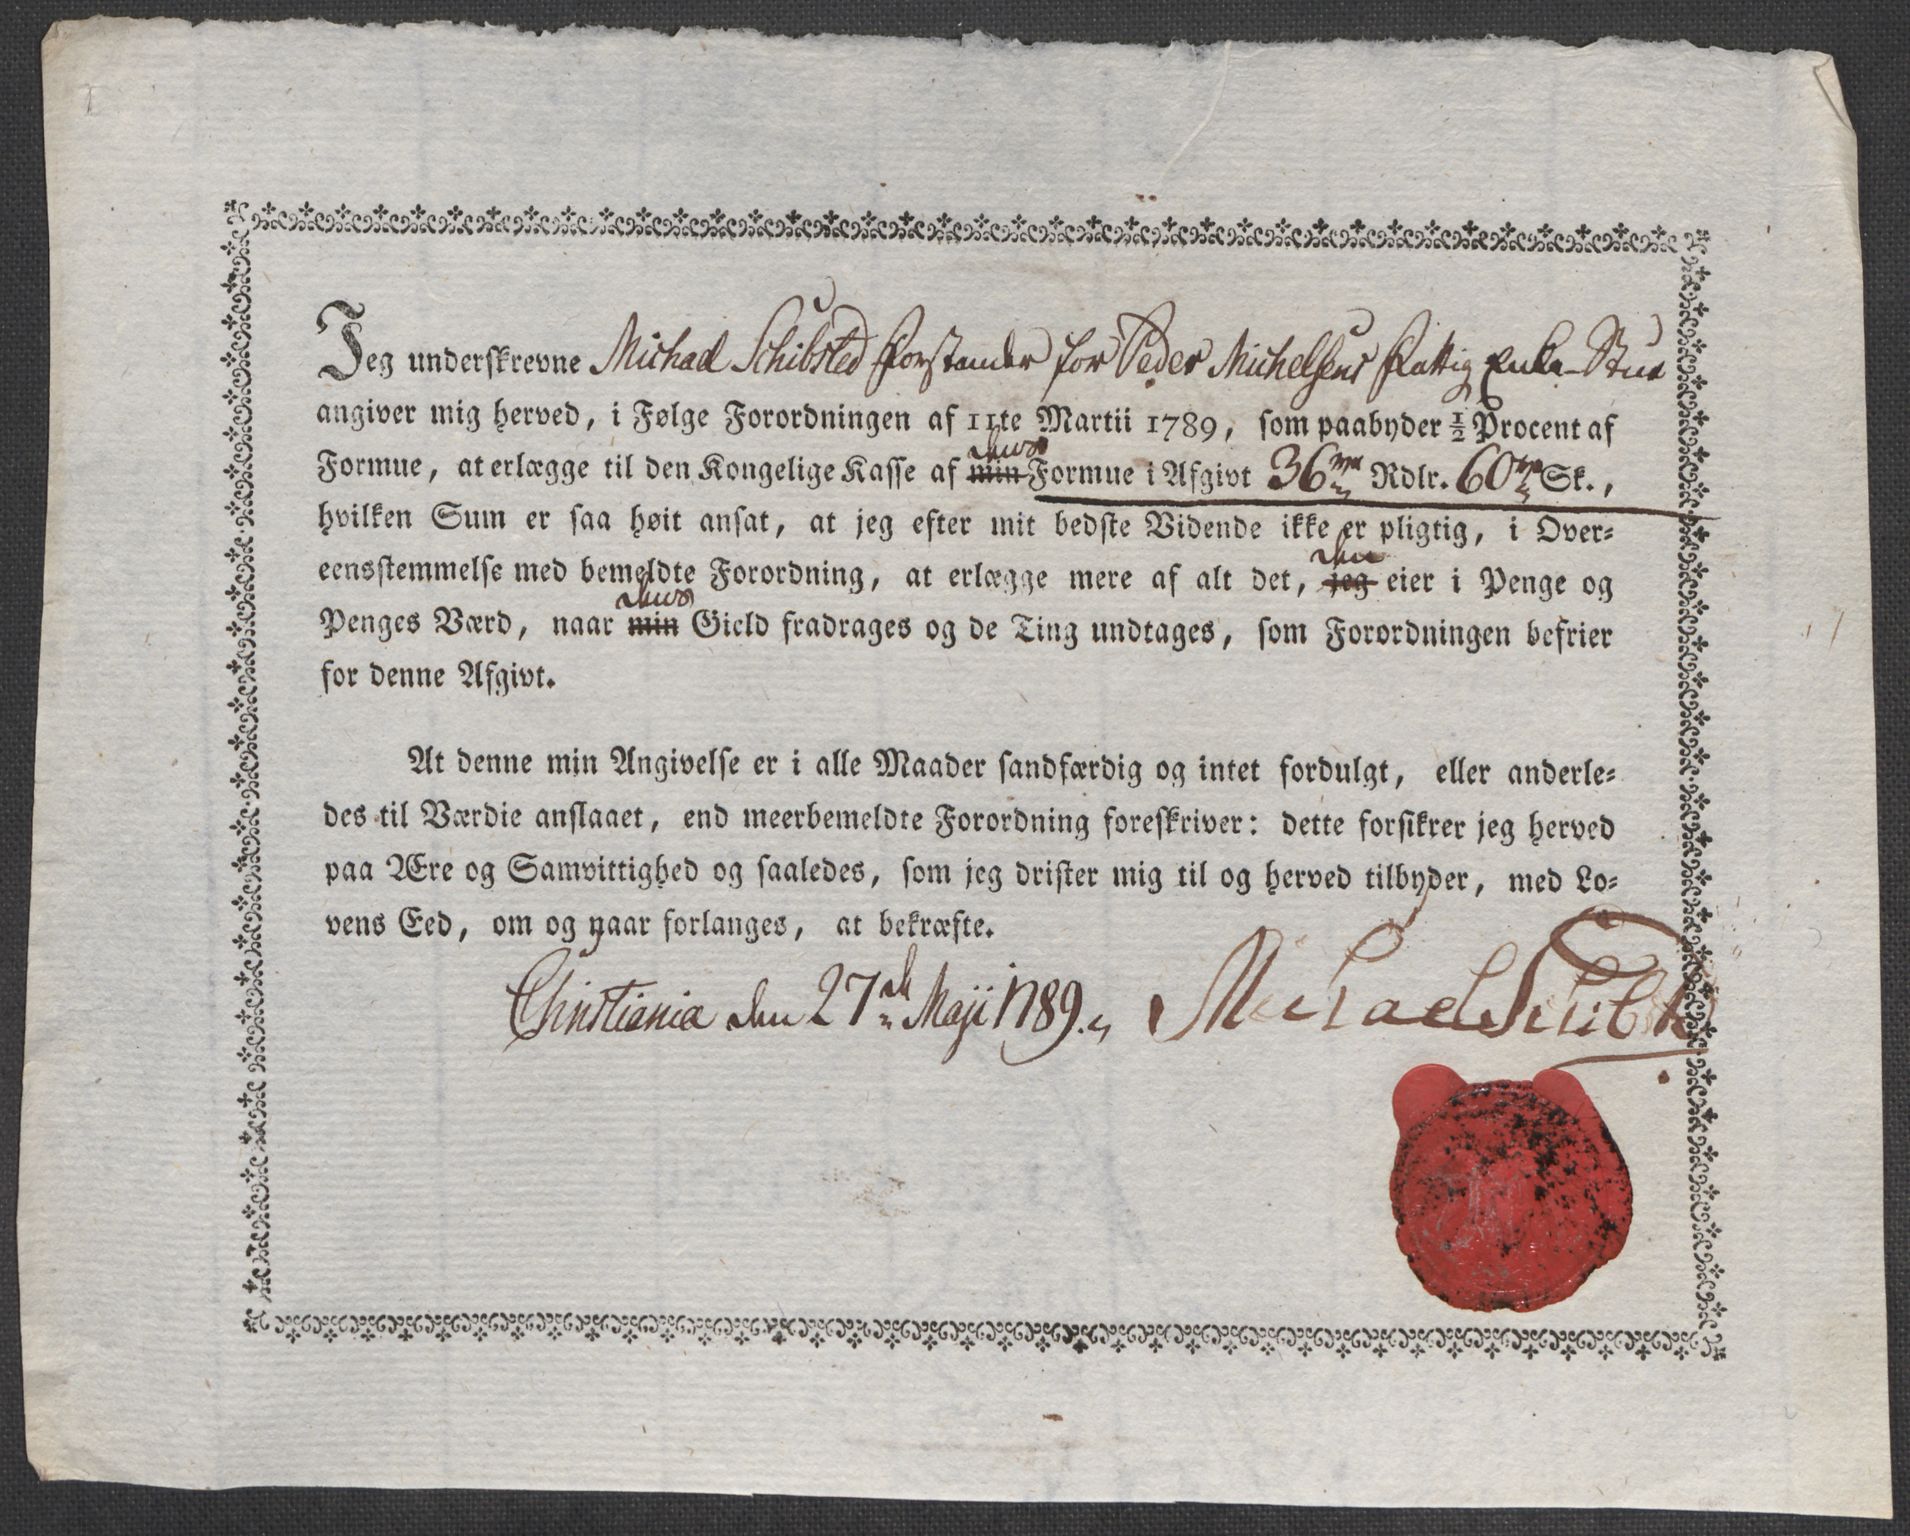 Jeg underskrevne Michael Schibsted Forstander for Peder Michelsens Fattig Enke-Stue
angiver mig herved, i Følge Forordningen af 11te Martii 1789, som paabyder ½ Procent af
dens
Formue, at erlægge til den Kongelige Kasse af min Formue i Afgivt 36 Rdlr. 60 Sk.,
hvilken Sum er saa høit ansat, at jeg efter mit bedste Vidende ikke er pligtig, i Over=
den
eensstemmelse med bemeldte Forordning, at erlægge mere af alt det, jeg eier i Penge og
dens
Penges Værd, naar min Gield fradrages og de Ting undtages, som Forordningen befrier
for denne Afgivt.
At denne min Angivelse er i alle Maader sandfærdig og intet fordulgt, eller anderle=
des til Værdie anslaaet, end meerbemeldte Forordning foreskriver: dette forsikrer jeg herved
paa Ære og Samvittighed og saaledes, som jeg drister mig til og herved tilbyder, med Lo=
vens Eed, om og naar forlanges, at bekræfte.
Christiania den 27de Maji 1789. Michael Schibsted